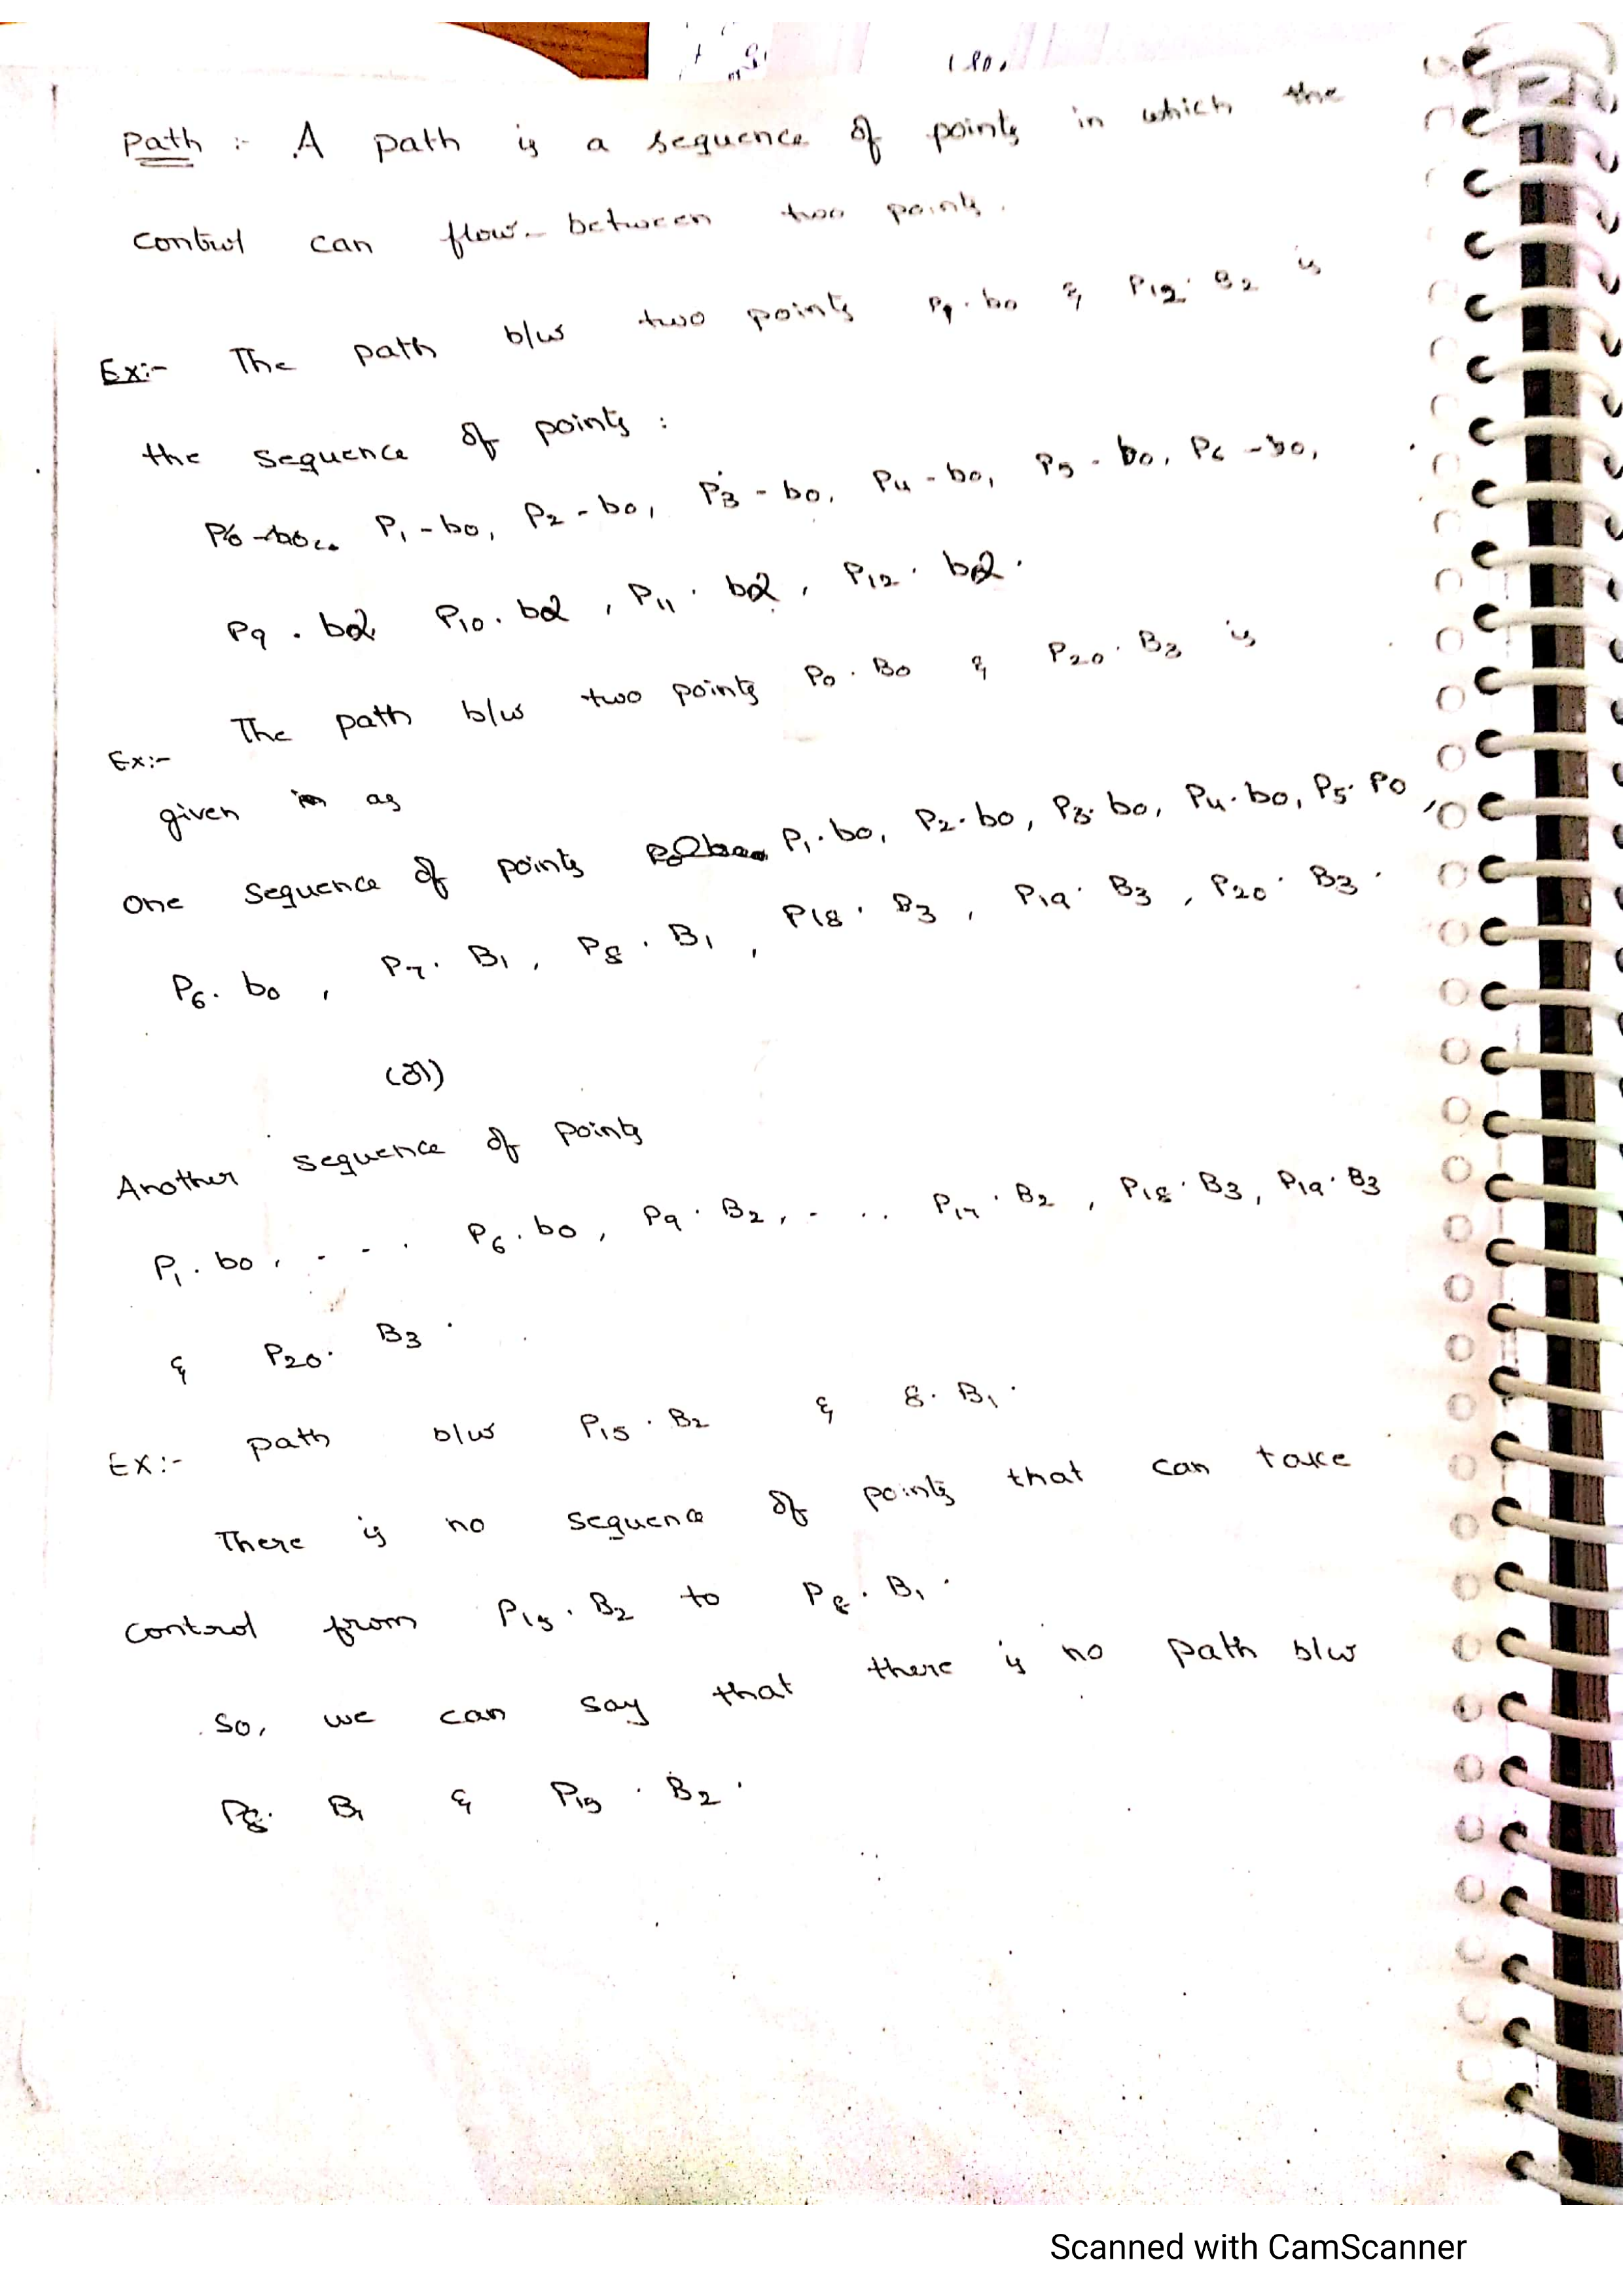 Path :- A path is a sequence of points in which the
control can flow between two points.
Ex:- The path b/w two points P1.b0 & P12.B2 is
the sequence of points :
P1-b0, P2-b0, P3-b0, P4-b0, P5-b0, P6-b0,
P9.b2, P10.b2, P11.b2, P12.b2.
Ex:- The path b/w two points P0.B0 & P20.B3 is
given as
One sequence of points P1.b0, P2.b0, P3.b0, P4.b0, P5.P0,
P6.b0, P7.B1, P8.B1, P18.B3, P19.B3, P20.B3.
(or)
Another sequence of points
P1.b0, - - . P6.b0, P9.B2, - .. P17.B2, P18.B3, P19.B3
& P20.B3.
Ex:- path b/w P15.B2 & 8.B1.
There is no sequence of points that can take
control from P15.B2 to P8.B1.
So, we can say that there is no path b/w
P8.B1 & P15.B2.
Scanned with CamScanner